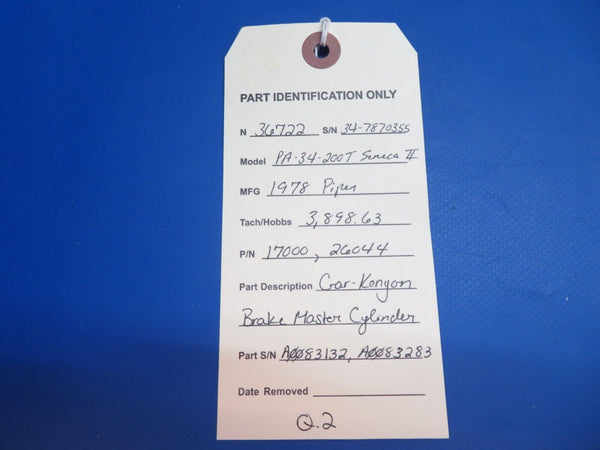 PART IDENTIFICATION ONLY
N 36722 S/N 34-7870355
Model PA-34-200T Seneca II
MFG 1978 Piper
Tach/Hobbs 3,898.63
P/N 17000, 26044
Part Description Gar-Kenyon
Brake Master Cylinder
Part S/N A0083132, A0083283
Date Removed
Q.2